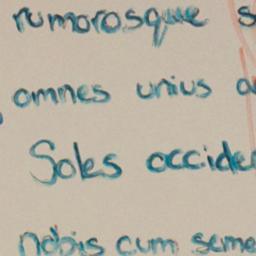 rumorosque s
omnes unius a
Soles occide
nobis cum seme